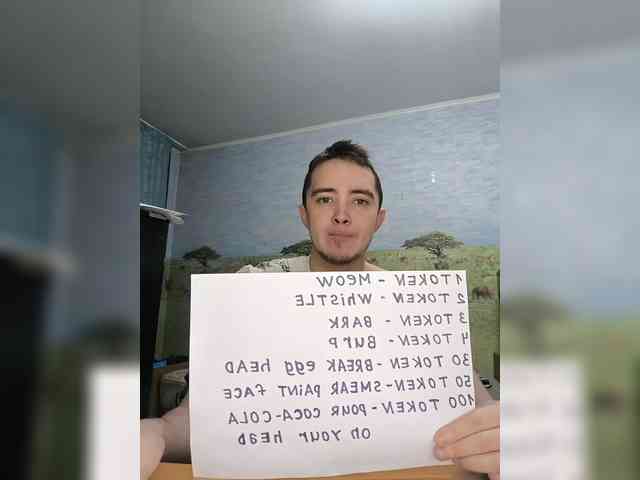 1 TOKEN - Meow
2 TOKEN - WHiSTLE
3 TOKEN - BARK
4 TOKEN - BUrP
30 TOKEN - BREAK egg hEAD
50 TOKEN - SMEAR PAiNT fACE
100 TOKEN - POUR COCA-COLA
ON YOUR hEAD